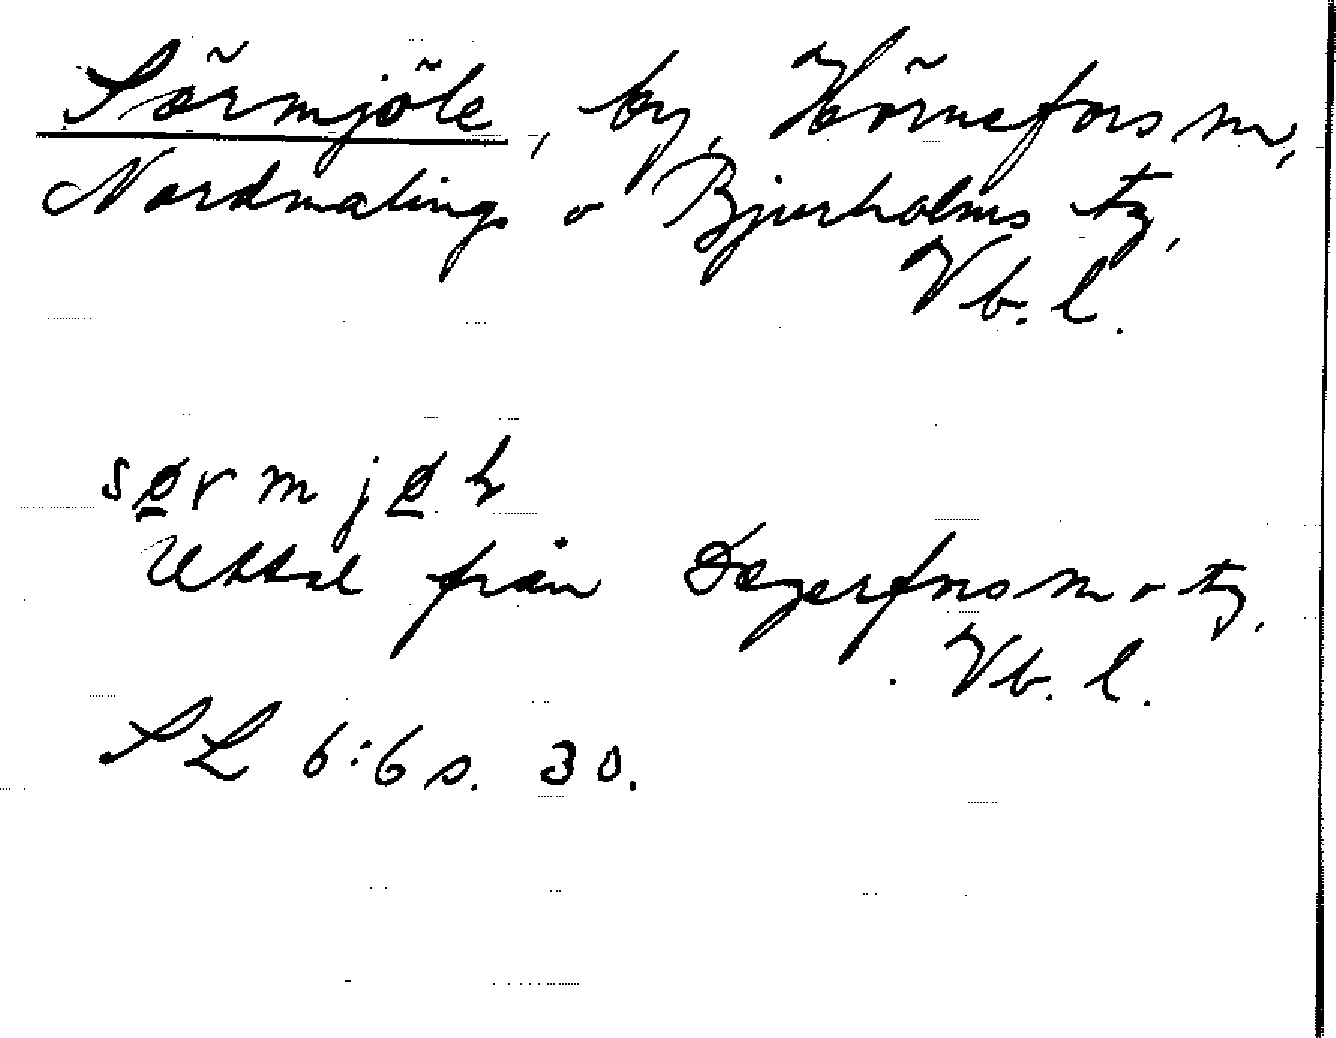 Sörmjöle, by, Hörnefors sn,
Nordmalings o Bjurholms tg,
Vb. l.
sø̲rmjø̲
Uttal från Degerfors sn o tg,
Vb. l.
SL 6:6 s. 30.